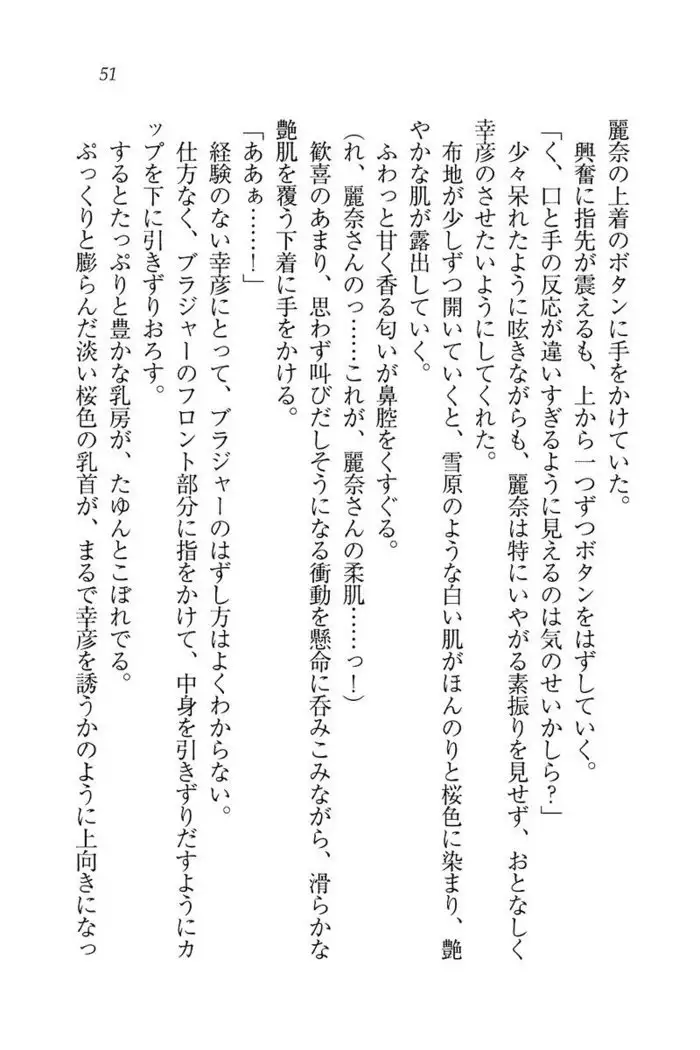 51
麗奈の上着のボタンに手をかけていた。
興奮に指先が震えるも、上から一つずつボタンをはずしていく。
「く、口と手の反応が違いすぎるように見えるのは気のせいかしら？」
少々呆れたように呟きながらも、麗奈は特にいやがる素振りを見せず、おとなしく
幸彦のさせたいようにしてくれた。
布地が少しずつ開いていくと、雪原のような白い肌がほんのりと桜色に染まり、艶
やかな肌が露出していく。
ふわっと甘く香る匂いが鼻腔をくすぐる。
（れ、麗奈さんのっ……これが、麗奈さんの柔肌……っ！）
歓喜のあまり、思わず叫びだしそうになる衝動を懸命に呑みこみながら、滑らかな
艶肌を覆う下着に手をかける。
「ああぁ……！」
経験のない幸彦にとって、ブラジャーのはずし方はよくわからない。
仕方なく、ブラジャーのフロント部分に指をかけて、中身を引きずりだすようにカ
ップを下に引きずりおろす。
するとたっぷりと豊かな乳房が、たゆんとこぼれでる。
ぷっくりと膨らんだ淡い桜色の乳首が、まるで幸彦を誘うかのように上向きになっ